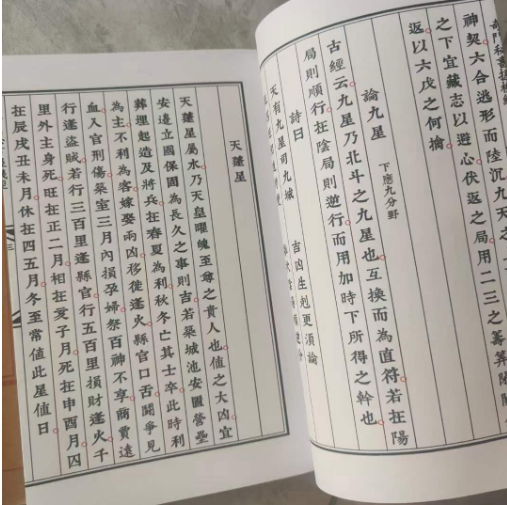 神契六合逃形而陸沉九天之
之下宜藏志以避心伏返之局用二三之籌算
返以六戊之何擒
論九星 下應九分野
古經云九星乃北斗之九星也互換而為直符若在陽
局則順行在陰局則逆行而用加時下所得之幹也
詩曰
天有九星司九域 吉凶生剋更須論
天蓬星
天蓬星屬水乃天皇曜魄至尊之貴人也值之大凶宜
安邊立國保固為長久之事則吉若築城池安置營壘
葬埋起造及將兵在春夏為利秋冬亡其士卒此時利
為主不利為客嫁娶兩凶移徙逢火縣官口舌鬪爭見
血入官刑傷築室三月內損孕婦祭百神不享商賈遠
行逢盜賊若行三百里逢縣官行五百里損財逢火千
里外主身死旺在正二月相在亥子月死在申酉月囚
在辰戌丑未月休在四五月冬至常值此星值日